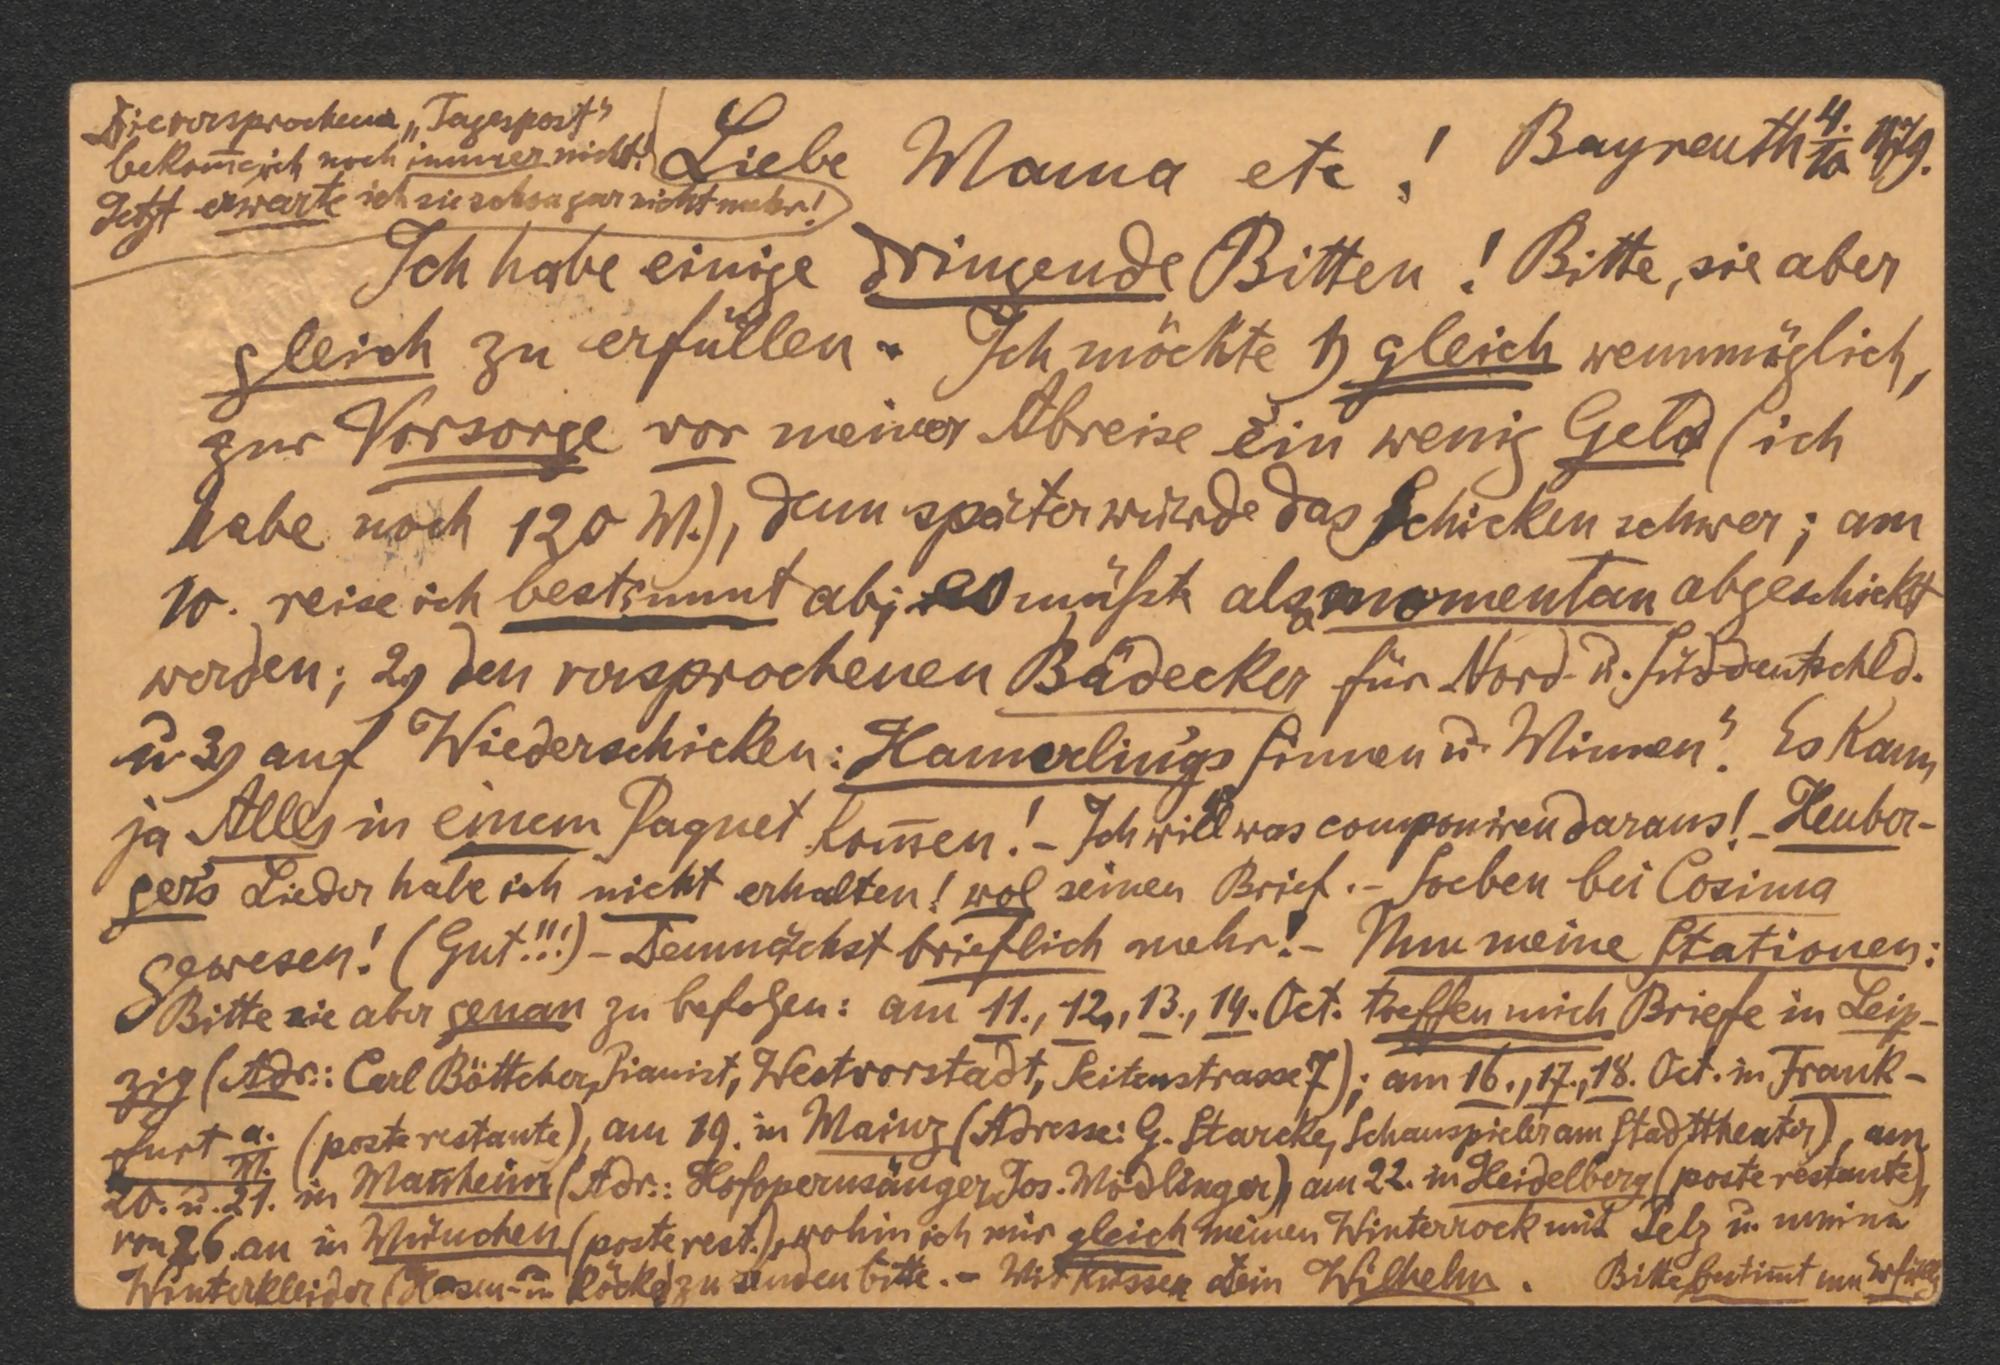 Die versprochene „Tagespost"
bekom̄e ich noch immer nicht!
Jetzt erwarte ich sie schon gar nicht mehr!
Liebe Mama etc! Bayreuth 4./10 1879.
Ich habe einige dringende Bitten! Bitte, sie aber
gleich zu erfüllen. Ich möchte 1) gleich wennmöglich,
zur Vorsorge vor meiner Abreise ein wenig Geld (ich
habe noch 120 M.), denn später würde das Schicken schwer; am
10. reise ich bestimmt ab; es müßte also momentan abgeschickt
werden; 2) den versprochenen Bädecker für Nord- u. Süddeutschld.
u 3) auf Wiederschicken: Hamerling's Sinnen u. Minnen". Es kann
ja Alles in einem Paquet kom̄en! – Ich will was componiren daraus! – Heuber-
ger's Lieder habe ich nicht erhalten! wol seinen Brief. – Soeben bei Cosima
gewesen! (Gut!!!) – Demnächst brieflich mehr! – Nun meine Stationen:
Bitte sie aber genau zu befolgen: am 11., 12., 13., 14. Oct. treffen mich Briefe in Leip-
zig (Adr.: Carl Böttcher, Pianist, Westvorstadt, Seitenstrasse 7); am 16., 17., 18. Oct. in Frank-
furt a./M. (poste restante), am 19. in Mainz (Adresse: G. Starcke, Schauspieler am Stadttheater), am
20. u. 21. in Man̄heim (Adr.: Hofopernsänger Jos. Mödlinger), am 22. in Heidelberg (poste restante),
von 26. an in München (poste rest.), wohin ich mir gleich meinen Winterrock mit Pelz u. meine
Winterkleider (Hosen- u Röcke) zu senden bitte. – Wir küssen Dein Wilhelm. Bitte bestim̄t um Erfüllg